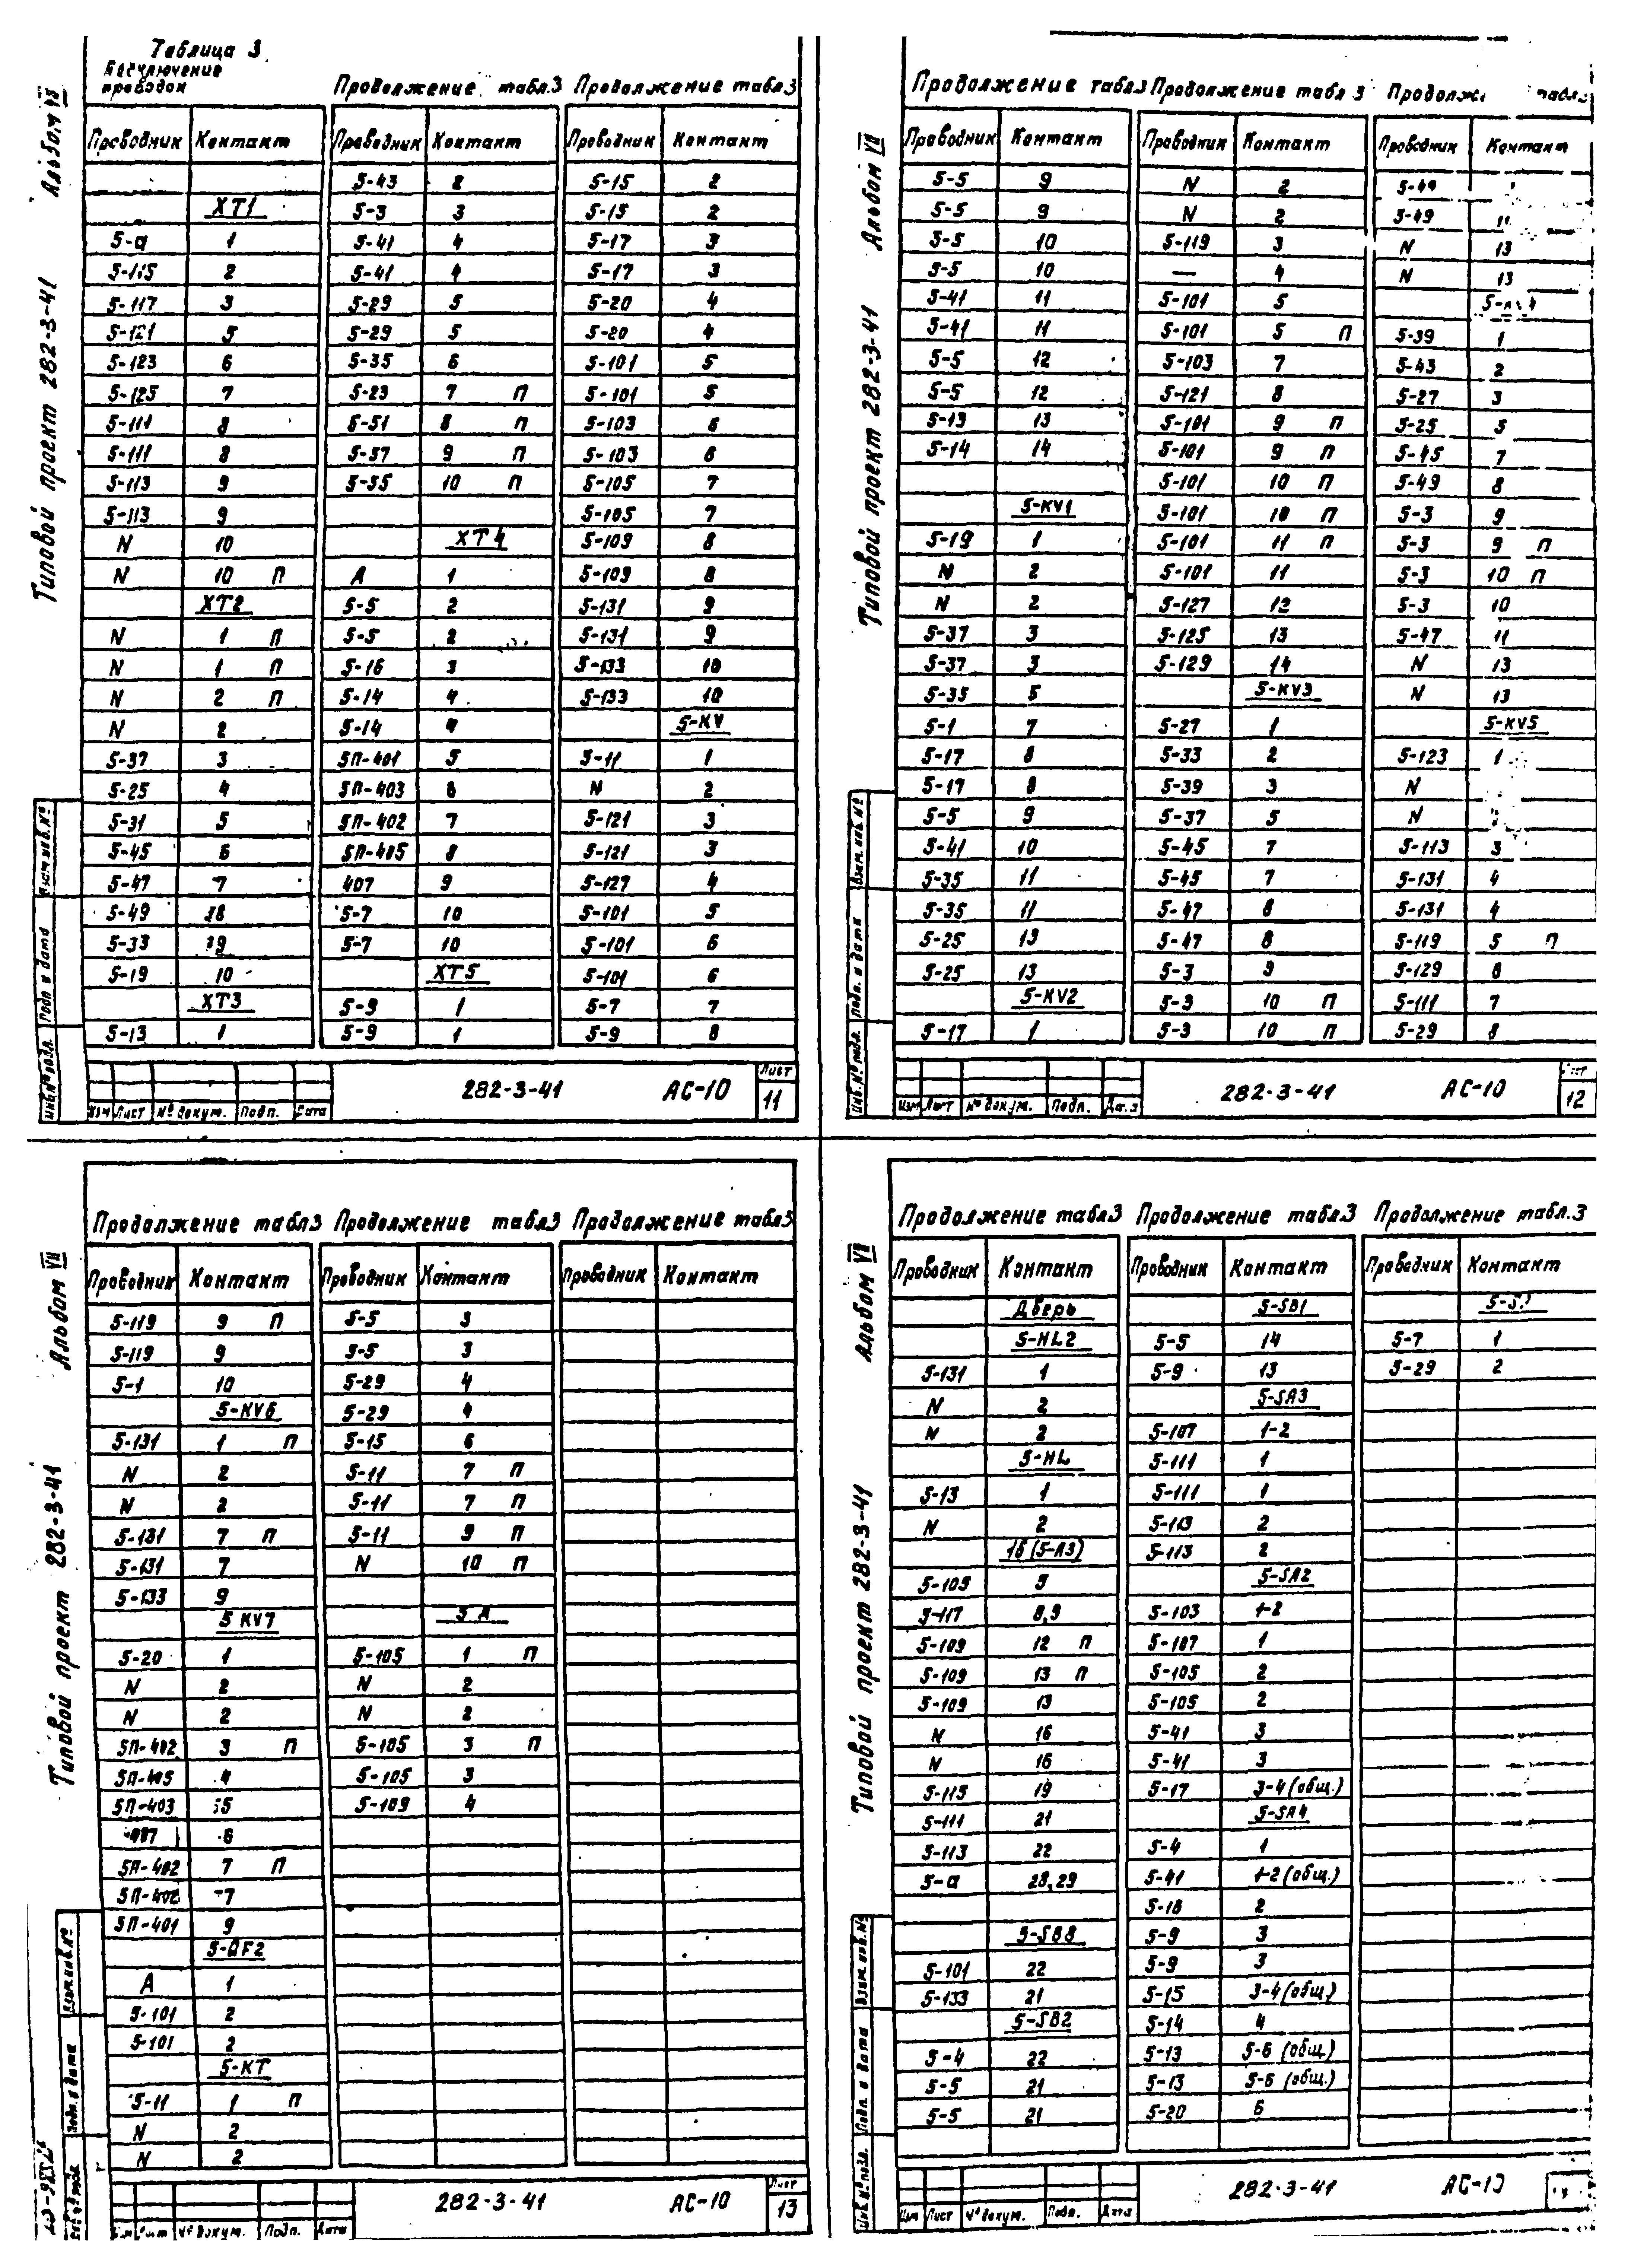 Таблица 3
проводок
Продолжение табл.3 Продолжение табл3
Альбом VII
Типовой проект 282-3-41
Проводник Контакт
ХТ1
5-а 1
5-115 2
5-117 3
5-121 5
5-123 6
5-125 7
5-111 8
5-111 8
5-113 9
5-113 9
N 10
N 10 П
ХТ2
N 1 П
N 1 П
N 2 П
N 2
5-37 3
5-25 4
5-31 5
5-45 6
5-47 7
5-49 8
5-33 9
5-19 10
ХТ3
5-13 1
Проводник Контакт
5-43 2
5-3 3
5-41 4
5-41 4
5-29 5
5-29 5
5-35 6
5-23 7 П
5-51 8 П
5-57 9 П
5-55 10 П
ХТ4
А 1
5-5 2
5-5 2
5-16 3
5-14 4
5-14 4
5П-401 5
5П-403 6
5П-402 7
5П-405 8
407 9
5-7 10
5-7 10
ХТ5
5-9 1
5-9 1
Проводник Контакт
5-15 2
5-15 2
5-17 3
5-17 3
5-20 4
5-20 4
5-101 5
5-101 5
5-103 6
5-103 6
5-105 7
5-105 7
5-109 8
5-109 8
5-131 9
5-131 9
5-133 10
5-133 10
5-KV
5-11 1
N 2
5-121 3
5-121 3
5-127 4
5-101 5
5-101 6
5-101 6
5-7 7
5-9 8
Взам инв.№
Подп и дата
Инв.№ подл.
Изм Лист № докум. Подп. Дата
282-3-41 АС-10
Лист
11
Продолжение табл3 Продолжение табл 3
Альбом VII
Типовой проект 282-3-41
Проводник Контакт
5-5 9
5-5 9
5-5 10
5-5 10
5-41 11
5-41 11
5-5 12
5-5 12
5-13 13
5-14 14
5-KV1
5-19 1
N 2
N 2
5-37 3
5-37 3
5-35 5
5-1 7
5-17 8
5-17 8
5-5 9
5-41 10
5-35 11
5-35 11
5-25 13
5-25 13
5-KV2
5-17 1
Проводник Контакт
N 2
N 2
5-119 3
— 4
5-101 5
5-101 5 П
5-103 7
5-121 8
5-101 9 П
5-101 9 П
5-101 10 П
5-101 10 П
5-101 11 П
5-101 11
5-127 12
5-125 13
5-129 14
5-KV3
5-27 1
5-33 2
5-39 3
5-37 5
5-45 7
5-45 7
5-47 8
5-47 8
5-3 9
5-3 10 П
5-3 10 П
Проводник Контакт
5-49
5-49 11
N 13
N 13
5-39 1
5-43 2
5-27 3
5-25 5
5-45 7
5-49 8
5-3 9
5-3 9 П
5-3 10 П
5-3 10
5-47 11
N 13
N 13
5-KV5
5-123 1
N
N
5-113 3
5-131 4
5-131 4
5-119 5 П
5-129 6
5-111 7
5-29 8
Взам. инв. №
Подп. и дата
Инв.№ подл.
Изм Лист № докум. Подп.
282-3-41 АС-10
12
Продолжение табл3 Продолжение табл3 Продолжение табл3
Альбом VII
Типовой проект 282-3-41
Проводник Контакт
5-119 9 П
5-119 9
5-1 10
5-KV6
5-131 1 П
N 2
N 2
5-131 7 П
5-131 7
5-133 9
5 KV7
5-20 1
N 2
N 2
5П-402 3 П
5П-405 4
5П-403 5
6
5П-402 7 П
5П-402 7
5П-401 9
5-QF2
А 1
5-101 2
5-101 2
5-КТ
5-11 1 П
N 2
N 2
Проводник Контакт
5-5 3
5-5 3
5-29 4
5-29 4
5-15 6
5-11 7 П
5-11 7 П
5-11 9 П
N 10 П
5 А
5-105 1 П
N 2
N 2
5-105 3 П
5-105 3
5-109 4
Проводник Контакт
Взам.инв.№
Подп. и дата
№ докум. Подп. Дата
282-3-41 АС-10
Лист
13
Продолжение табл3 Продолжение табл3 Продолжение табл.3
Альбом VII
Типовой проект 282-3-41
Проводник Контакт
Дверь
5-HL2
5-131 1
N 2
N 2
5-HL
5-13 1
N 2
16 (5-А3)
5-105 5
5-117 8,9
5-109 12 П
5-109 13 П
5-109 13
N 16
N 16
5-115 19
5-111 21
5-113 22
5-а 28,29
5-SB3
5-101 22
5-133 21
5-SB2
5-4 22
5-5 21
5-5 21
Проводник Контакт
5-SB1
5-5 14
5-9 13
5-SA3
5-107 1-2
5-111 1
5-111 1
5-113 2
5-113 2
5-SA2
5-103 1-2
5-107 1
5-105 2
5-105 2
5-41 3
5-41 3
5-17 3-4(общ.)
5-SA4
5-4 1
5-41 1-2(общ.)
5-16 2
5-9 3
5-9 3
5-15 3-4(общ.)
5-14 4
5-13 5-6 (общ.)
5-13 5-6 (общ.)
5-20 6
Проводник Контакт
5-7 1
5-29 2
Взам. инв.№
Подп. и дата
Инв.№ подл.
Изм Лист № докум. Подп. Дата
282-3-41 АС-10